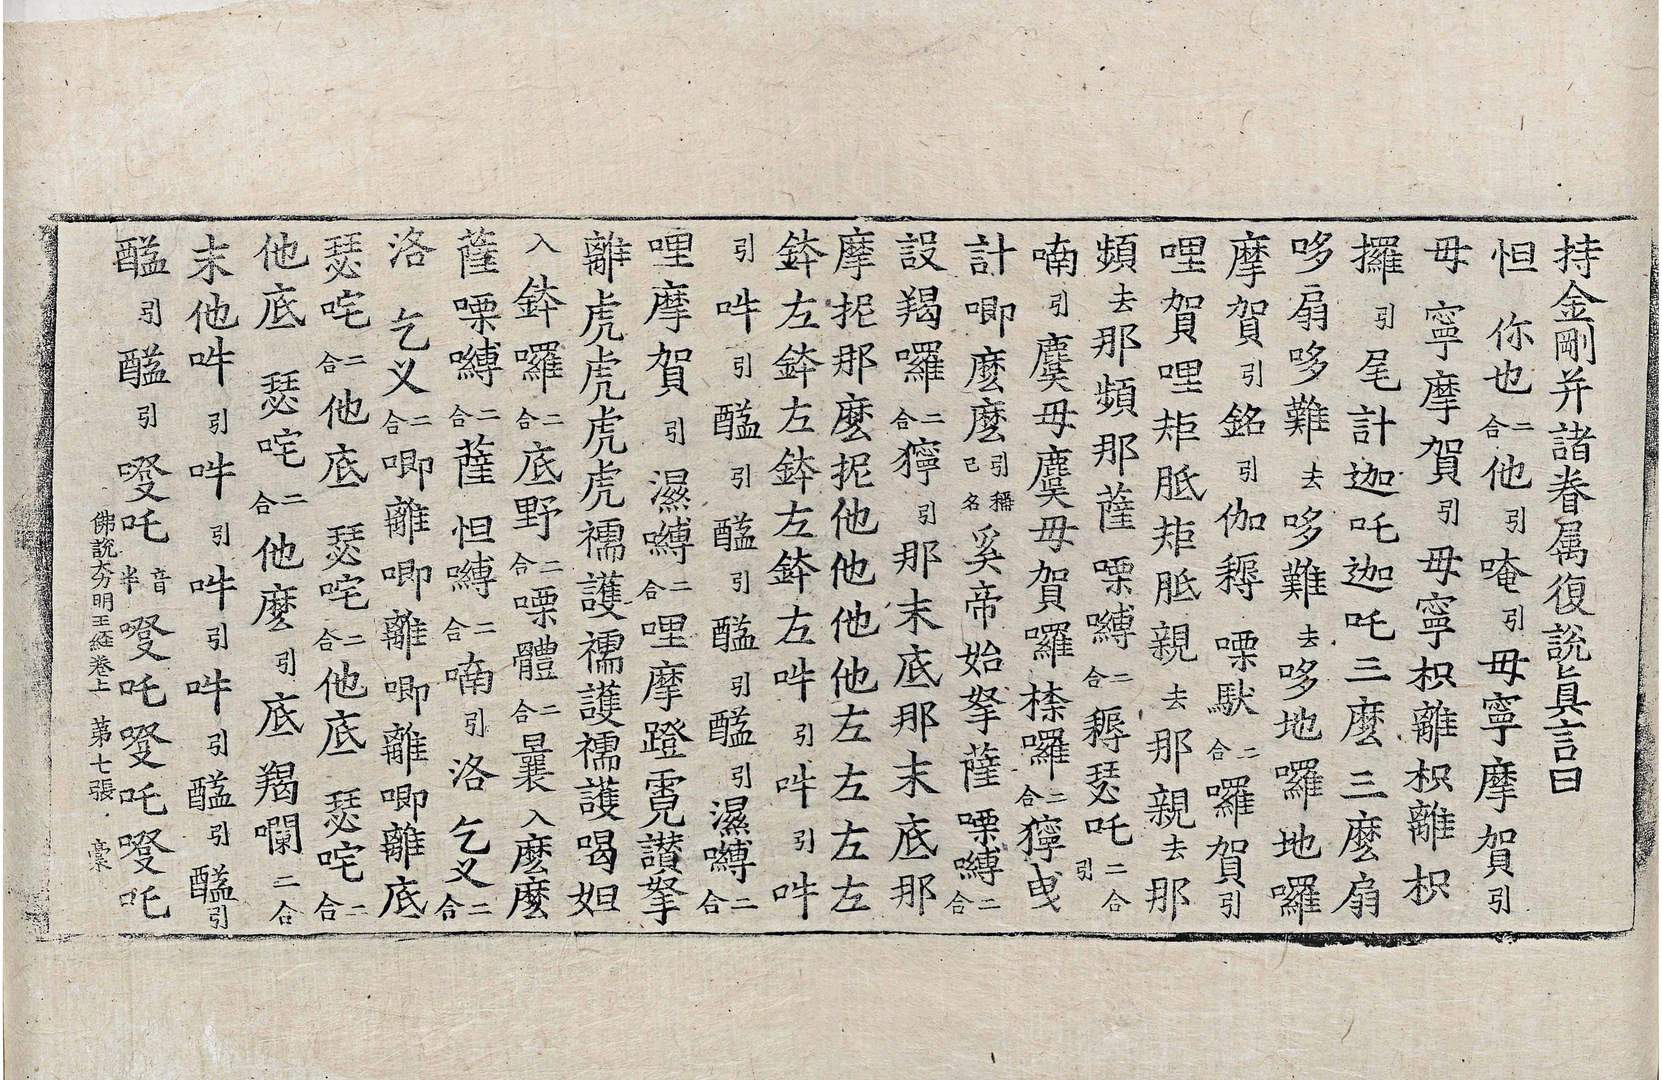 持金剛并諸眷属復說真言曰
怛你也二合他引唵引毋寧摩賀引
毋寧摩賀引毋寧枳離枳離枳
攞引尾計迦吒迦吒三麼三麼扇
哆扇哆難去哆難去哆地囉地囉
摩賀引銘引伽耨㗚馱二合囉賀引
哩賀哩矩胝矩胝親去那親去那
頻去那頻那薩㗚嚩二合耨瑟吒二合引
喃引虞毋虞毋賀囉捺囉二合獰曳
計唧麼麼引稱己名奚帝始拏薩㗚嚩二合
設羯囉二合獰引那末底那末底那
摩抳那麼抳他他他他左左左左
鉢左鉢左鉢左鉢左吽引吽引吽
引吽引醯引醯引醯引醯引濕嚩二合
哩摩賀引濕嚩二合哩摩蹬霓讃拏
離虎虎虎虎護護護喝妲
入鉢囉二合底野二合㗚體二合曩入麼麼
薩㗚嚩二合薩怛嚩二合喃引洛乞义二合
洛乞义二合唧離唧離唧離唧離底
瑟咤二合他底瑟咤二合他底瑟咤二合
他底瑟咤二合他麼引底羯嚂二合
末他吽引吽引吽引吽引醯引醯引
醯引醯引噔吒半音噔吒噔吒噔吒
佛說大力明王經卷上 第七張